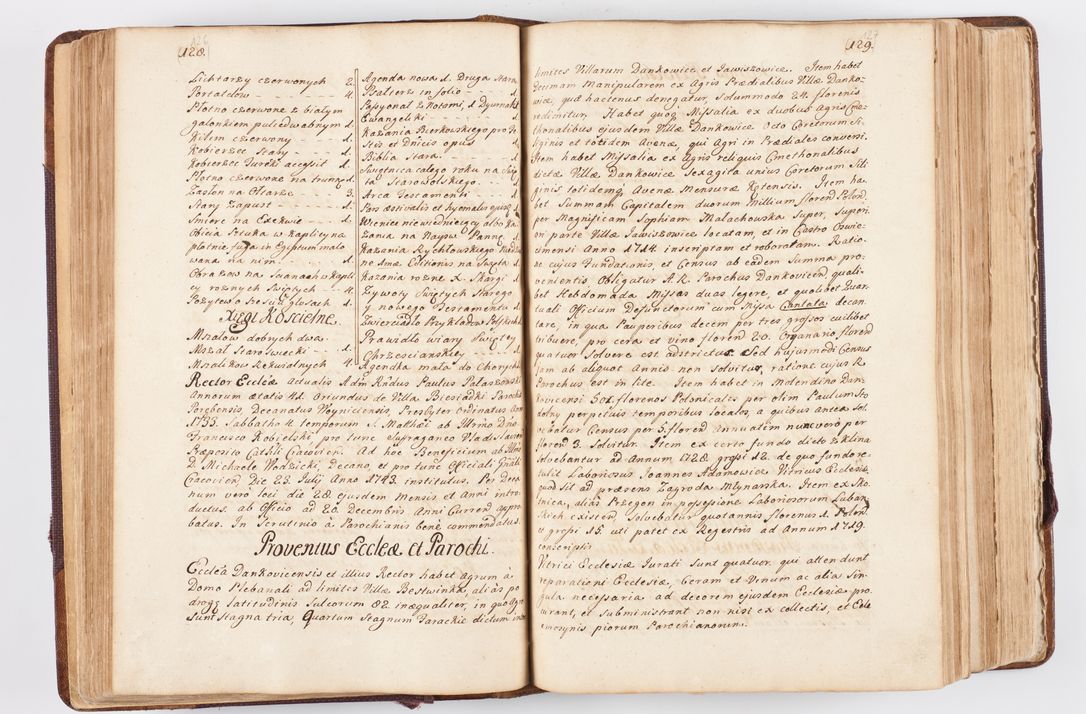 128.
Lichtarzy czerwonych 2.
Portatelow 4.
Płotno czerwone z białym
galonkiem pułiedwabnym 1.
Kilim czerwony 1.
Kobierzec Stary 1.
Kobierzec Turecki accessit 1.
Płotno czerwone na trunnę 1.
Zasłon na Ołtarze 3.
Stary Zapust 1.
Smiere na Exekwie 1.
Obicia Sztuka w kaplicy na
płotnie fuga in Egiptum malo
wana na nim 1.
Obrazow na Scianach w kapli
cy roznych Swiętych 4.
Pozytew o sześciu głosach 1.
Xięgi Kościelne.
Mszałow dobrych dwa.
Mszał Staroswiecki 1.
Mszalikow Rekwialnych 4.
Agenda nowa 1. Druga Stara
Psałterz in folio 1.
Passyonał z Notami, 1 Dyurnał 1
Ewangeliki 1.
Kazania Bierkowskiego pro Fe
stis et Dnicis opus 1.
Biblia Stara 1.
Swiętnica całego roku na Swię
ta Starowolskiego 1.
Arca Testamenti 1.
Pars aestivalis et hyemalis ejusd. 1.
Wieniec niewiędnieiący albo Ka
zania na Nayśw: Pannę 1.
Kazania Rychłowskiego Niedziel
ne 2dae Editionis na Swięta 1.
Kazania rozne X. Skargi 1.
Zywoty Swiętych Starego
y nowego Testamentu 1.
Zwierciadło Przykładow Polskich 1.
Prawidło wiary Swiętey
Chrzescianskiey 1.
Agendka mała do Chorych
Rector Eccleae actualis Adm Rndus Paulus Palaszowski
Annorum aetatis 41. Oriundus de Villa Biesiadki Parochi
Porębensis, Decanatus Woyniciensis, Presbyter Ordinatus Ann
1733. Sabbatho 4 temporum S. Mathei ab Illmo Dno
Francisco Kobielski pro tunc Suffraganeo Vladislavien
Praeposito Cathli Cracovien. Ad hoc Beneficium ab Illmo
D. Michaele Wodzicki, Decano, et pro tunc Officiali Gnali
Cracovien Die 23. Julij Anno 1743. institutus. Per Deca
num vero loci die 28 ejusdem Mensis et Anni intro
ductus. ab Officio ad 20 Decembris Anni Curren appro
batus. In Scrutinio à Parochianis bene commendatus.
Proventus Eccleae et Parochi.
Ecclea Dankovicensis et illius Rector habet agrum à
Domo Plebanali ad limites Villae Bestwinka, aliàs po
drogę latitudinis Sulcorum 82 inaequaliter, in quo Agro
Sunt Stagna tria, Quartum Stagnum Parackie dictum intra
129.
limites Villarum Dankowice et Jawiszowice. Item habet
Decimam Manipularem ex Agris Praedialibus Villae Danko
wice, quae hactenus denegatur, solummodo 24. florenis
redimitur. Habet quoq Missalia ex duobus Agris Cme
thonalibus ejusdem Villae Dankowice Octo Coretorum Si
liginis et totidem Avenae, qui Agri in Praediales conversi.
Item habet Missalia ex Agris reliquis Cmethonalibus
dictae Villae Dankowice Sexaginta unius Coretorum Sili
ginis totidemq Avenae Mensurae Kętensis. Item ha
bet Summam Capitalem duorum Millium floren Polon.
per Magnificam Sophiam Malachowska Super, Superi
ori parte Villae Jawiszowice locatam, et in Castro Oswie
cimensi Anno 1714. inscriptam et roboratam. Ratio
ne cujus Fundationis, et Census ab eadem Summa pro
venientis Obligatur A. R. Parochus Dankovicen quali
bet Hebdomada Missas duas legere, et quolibet Quar
tuali Officium Defunctorum cum Missa Cantata decan
tare, in qua Pauperibus decem per tres grossos cuilibet
tribuere, pro cera et vino floren 20. Organario floren
quatuor Solvere est adstrictus. Sed hujusmodi Census
jam ab aliquot Annis non Solvitur, ratione cujus R.
Parochus est in lite. Item habet in Molendino Dan
kovicensi 501. florenos Polonicales per olim Paulum Sto
dolny perpetuis temporibus locales, a quibus antea Sol
vebatur Census per 5. floren Annuatim nunc vero per
floren 3. Solvitur. Item ex certo fundo dicto z Klina
Solvebantur ad Annum 1728 grossi 12. de quo fundo re
tulit Laboriosus Joannes Adamowicz Vitricus Ecclesiae
quod Sit ad praesens Zagroda Mlynarska. Item ex Sko
tnica, alias Przegon in possessione Laboriosorum Luban
skich existen Solvebatur quotannis florenus 1. Polon
et grossi 15. uti patet ex Regestris ad Annum 1719.
conscriptis.
Vitrici Ecclesiae Jurati Sunt quatuor, qui attendunt
reparationi Ecclesiae, Ceram et Vinum ac alia Sin
gula necessaria ad decorem ejusdem Ecclesiae pro
curant, et Subministrant non nisi ex collectis, et Ele
emosynis piorum Parochianorum.